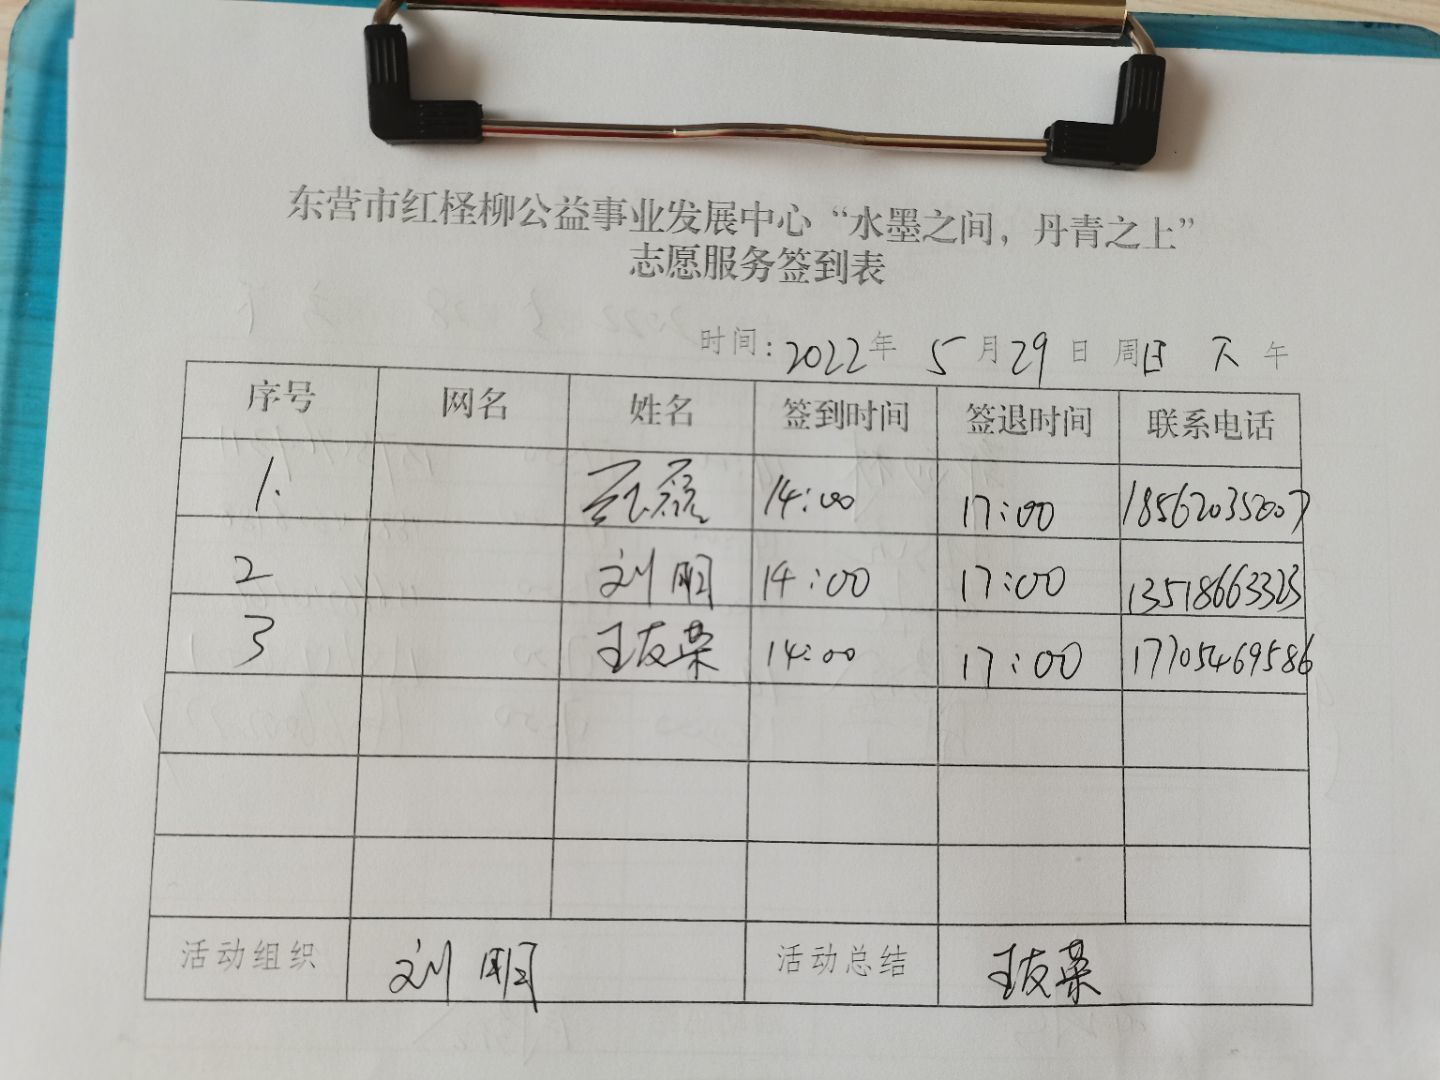 东营市红柽柳公益事业发展中心“水墨之间，丹青之上”
志愿服务签到表
时间：2022年 5月29日 周日 下午
序号 网名 姓名 签到时间 签退时间 联系电话
1. 14:00 17:00 18562035007
2 刘明 14:00 17:00 13518663323
3 王友荣 14:00 17:00 17705469586
活动组织 刘明 活动总结 王友荣